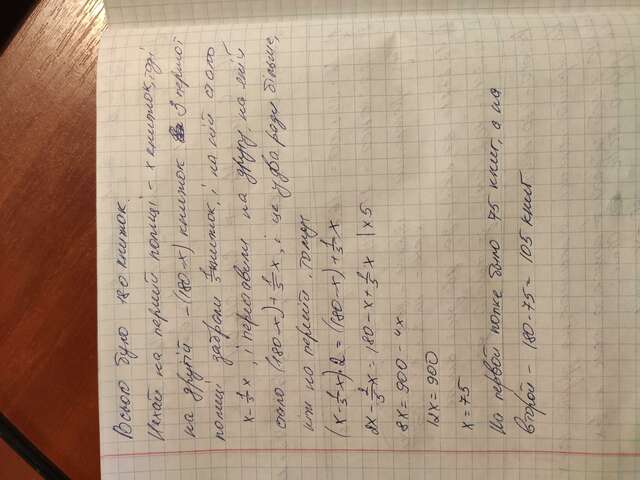 Всього було 180 книжок.
Нехай на першій полиці - x книжок, тоді
на другій - (180-x) книжок З першої
полиці забрали 1/5 книжок, і на ній стало
x - 1/5x, і переставили на другу, на якій
стало (180-x) + 1/5x, і це у два рази більше,
ніж на першій. Тому:
(x - 1/5x)·2 = (180-x) + 1/5x
2x - 2/5x = 180 - x + 1/5x | x5
8x = 900 - 4x
12x = 900
x = 75
На первой полке было 75 книг, а на
второй - 180-75 = 105 книг